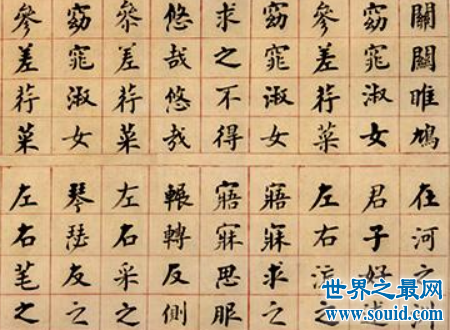 關關雎鳩在河之洲
窈窕淑女君子好逑
參差荇菜左右流之
窈窕淑女寤寐求之
求之不得寤寐思服
悠哉悠哉輾轉反側
參差荇菜左右采之
窈窕淑女琴瑟友之
參差荇菜左右芼之
世界之最网
www.souid.com